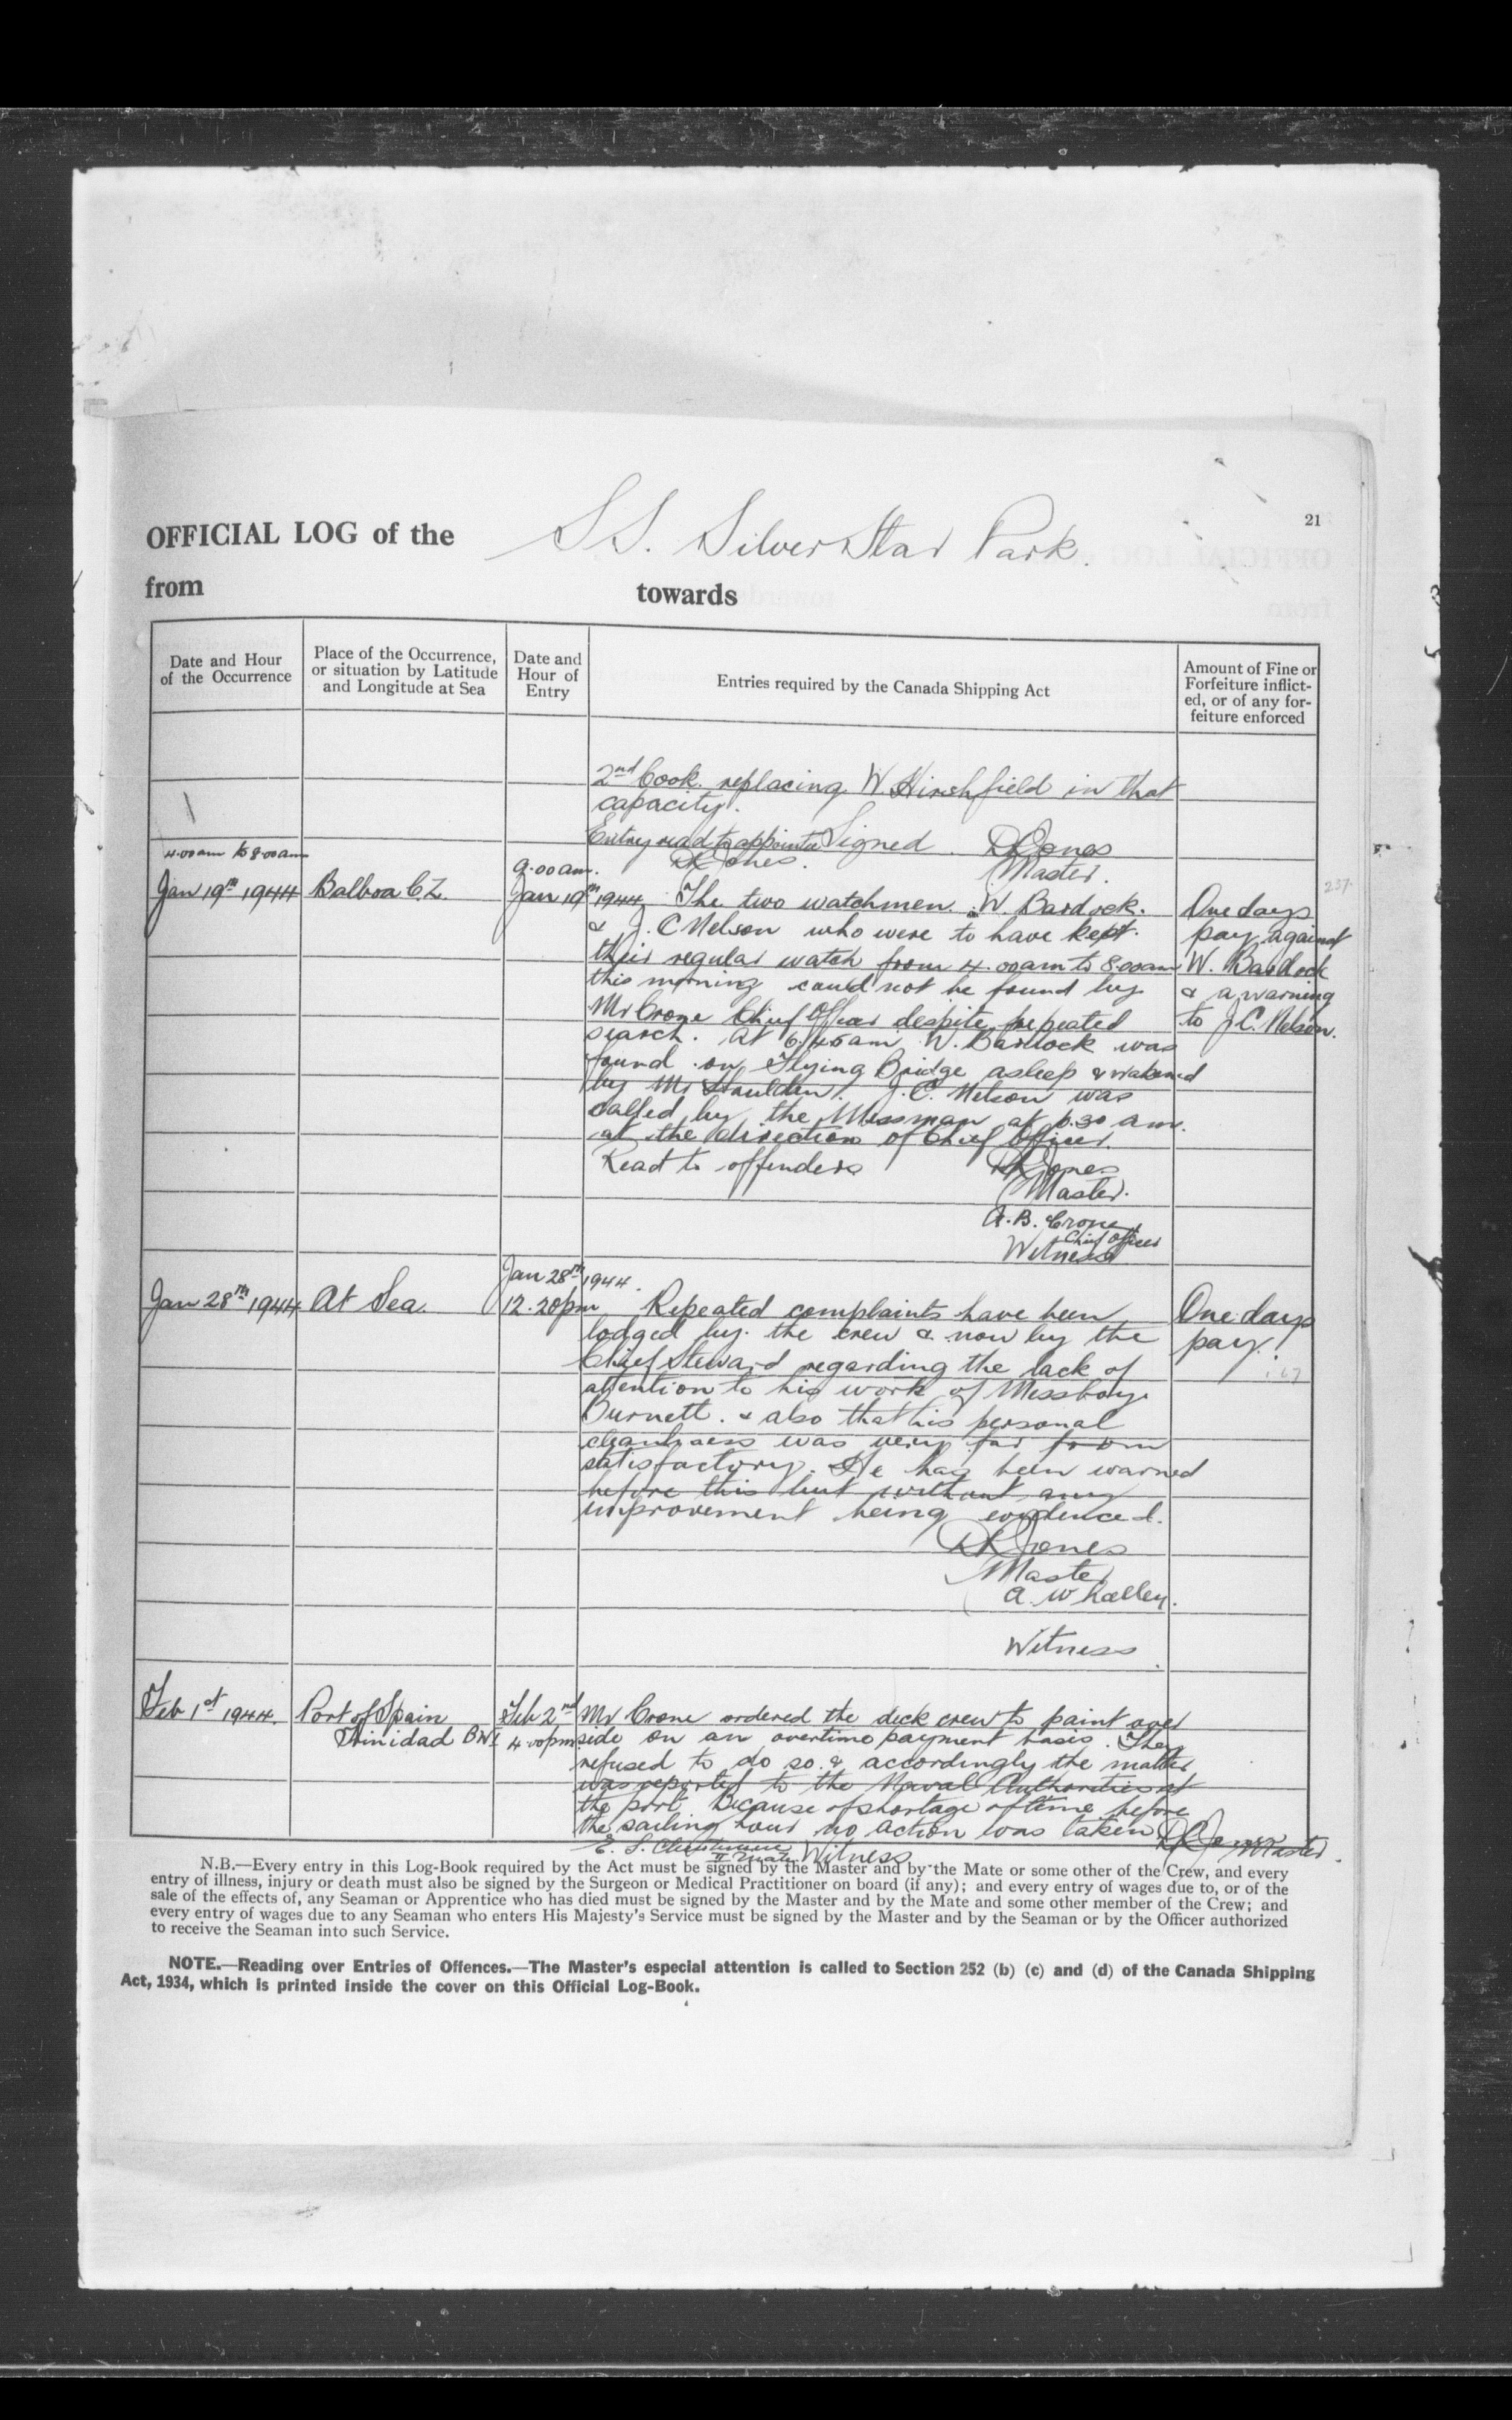 21
OFFICIAL LOG of the S.S. Silver Star Park.
from towards
Date and Hour
of the Occurrence
Place of the Occurrence,
or situation by Latitude
and Longitude at Sea
Date and
Hour of
Entry
Entries required by the Canada Shipping Act
Amount of Fine or
Forfeiture inflict-
ed, or of any for-
feiture enforced
2nd Cook replacing W. Hirshfield in that
capacity.
Entry read to appointee Signed. RK Jones
RK Jones. Master.
4.00am to 8.00am
Jan 19th 1944
Balboa C.Z.
9.00am.
Jan 19th 1944
The two watchmen. W. Bardock.
& J. C Nelson who were to have kept.
their regular watch from 4.00am to 8.00am
this morning could not be found by
Mr Crone Chief Officer despite repeated
search. At 6.45am W. Bardock was
found on Flying Bridge asleep & wakened
by Mr Houlden. J. C. Nelson was
called by the Messman at 6.30 am.
at the direction of Chief Officer.
Read to offenders RK Jones
Master.
A. B. Crone
Chief Officer
Witness
One days
pay against
W. Bardock
& a warning
to J.C. Nelson.
237.
Jan 28th 1944
At Sea.
Jan 28th 1944.
12.20pm
Repeated complaints have been
lodged by the crew & now by the
Chief Steward regarding the lack of
attention to his work of Messboy
Burnett. & also that his personal
cleanliness was very far from
satisfactory. He has been warned
before this but without any
improvement being evidenced.
RK Jones
Master
A. Whalley.
Witness
One days
pay.
Feb 1st 1944.
Port of Spain
Trinidad BWI
Feb 2nd
4.00pm
Mr Crone ordered the deck crew to paint over
side on an overtime payment basis. They
refused to do so. & accordingly the matter
was reported to the Naval Authorities at
the port. Because of shortage of time before
the sailing hour no action was taken RK Jones Master.
E. S. II Mate Witness
N.B.—Every entry in this Log-Book required by the Act must be signed by the Master and by the Mate or some other of the Crew, and every
entry of illness, injury or death must also be signed by the Surgeon or Medical Practitioner on board (if any); and every entry of wages due to, or of the
sale of the effects of, any Seaman or Apprentice who has died must be signed by the Master and by the Mate and some other member of the Crew; and
every entry of wages due to any Seaman who enters His Majesty's Service must be signed by the Master and by the Seaman or by the Officer authorized
to receive the Seaman into such Service.
NOTE.—Reading over Entries of Offences.—The Master's especial attention is called to Section 252 (b) (c) and (d) of the Canada Shipping
Act, 1934, which is printed inside the cover on this Official Log-Book.